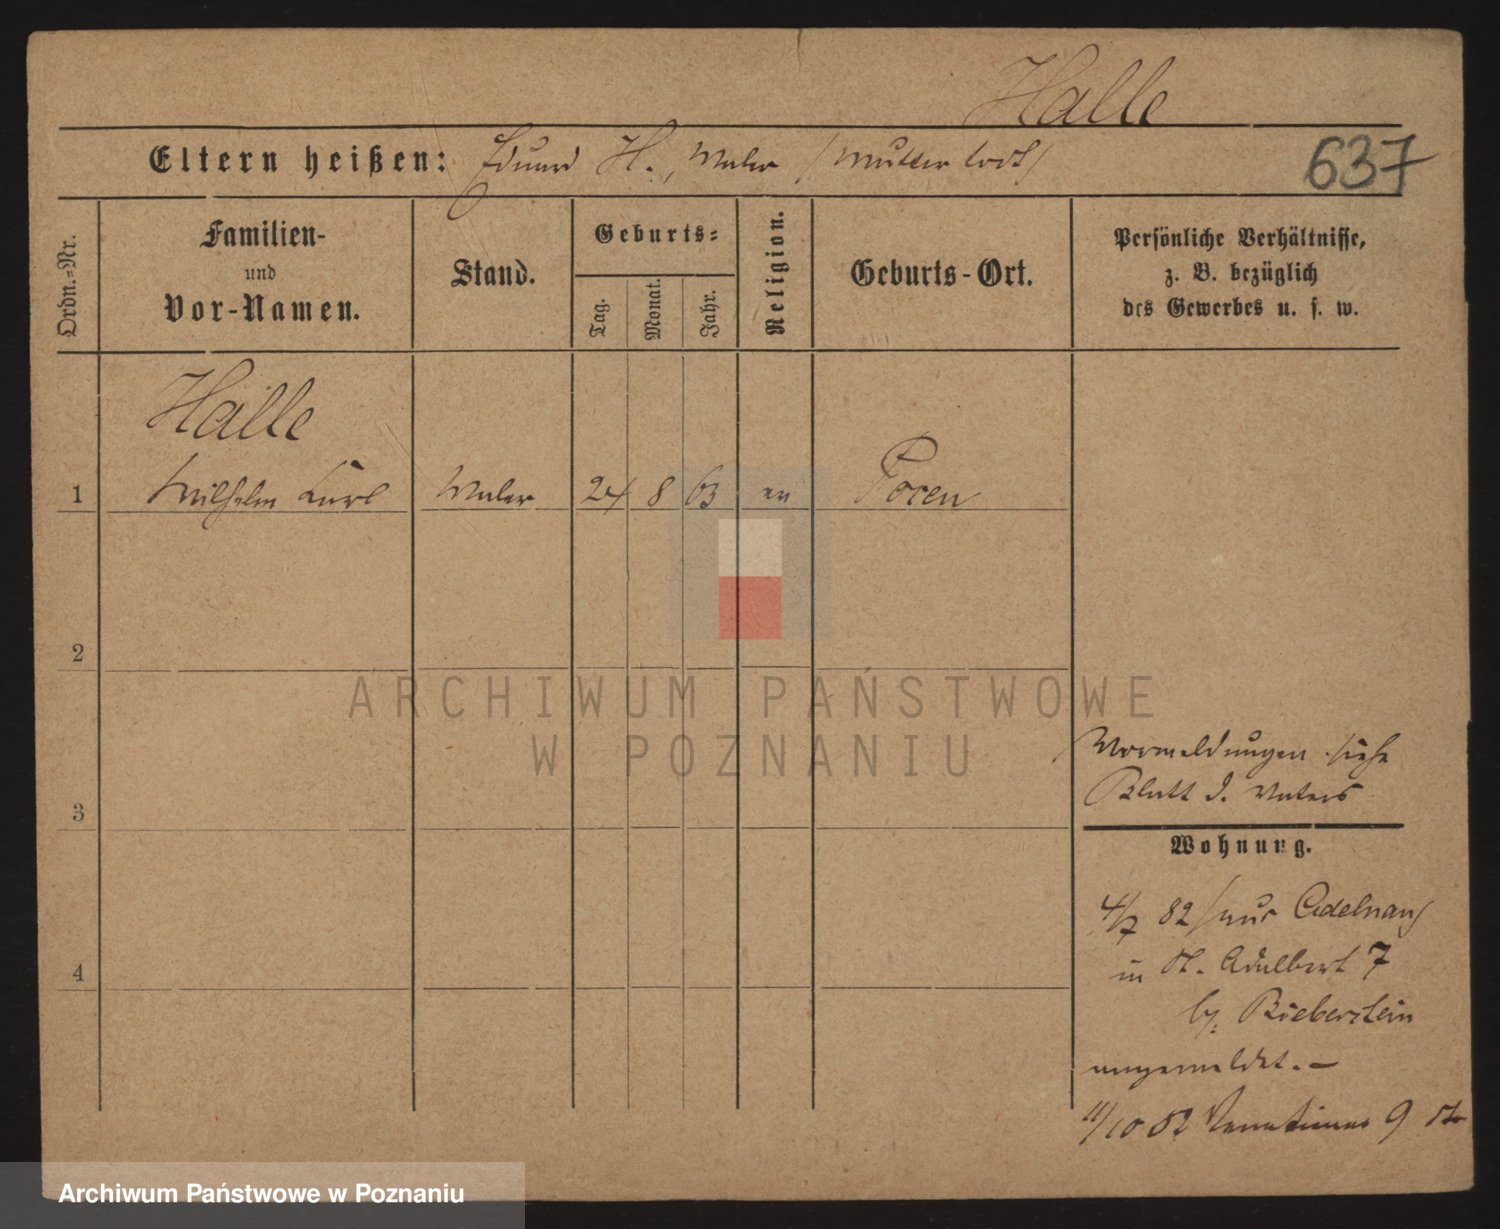 Halle
637
Eltern heißen: Eduard H., Maler /Mutter todt/
Ordn.-Nr.
Familien-
und
Vor-Namen.
Stand.
Geburts-
Tag.
Monat.
Jahr.
Religion.
Geburts-Ort.
Persönliche Verhältnisse,
z. B. bezüglich
des Gewerbes u. s. w.
Halle
1 Wilhelm Carl Maler 24 8 63 ev Posen
2
ARCHIWUM PAŃSTWOWE
W POZNANIU
Vormeldungen siehe
Blatt d. Vaters
3
Wohnung.
4/7 82 /aus Adelnau/
in St. Adalbert 7
by: Bieberstein
4
angemeldet. —
11/10 82 9
Archiwum Państwowe w Poznaniu